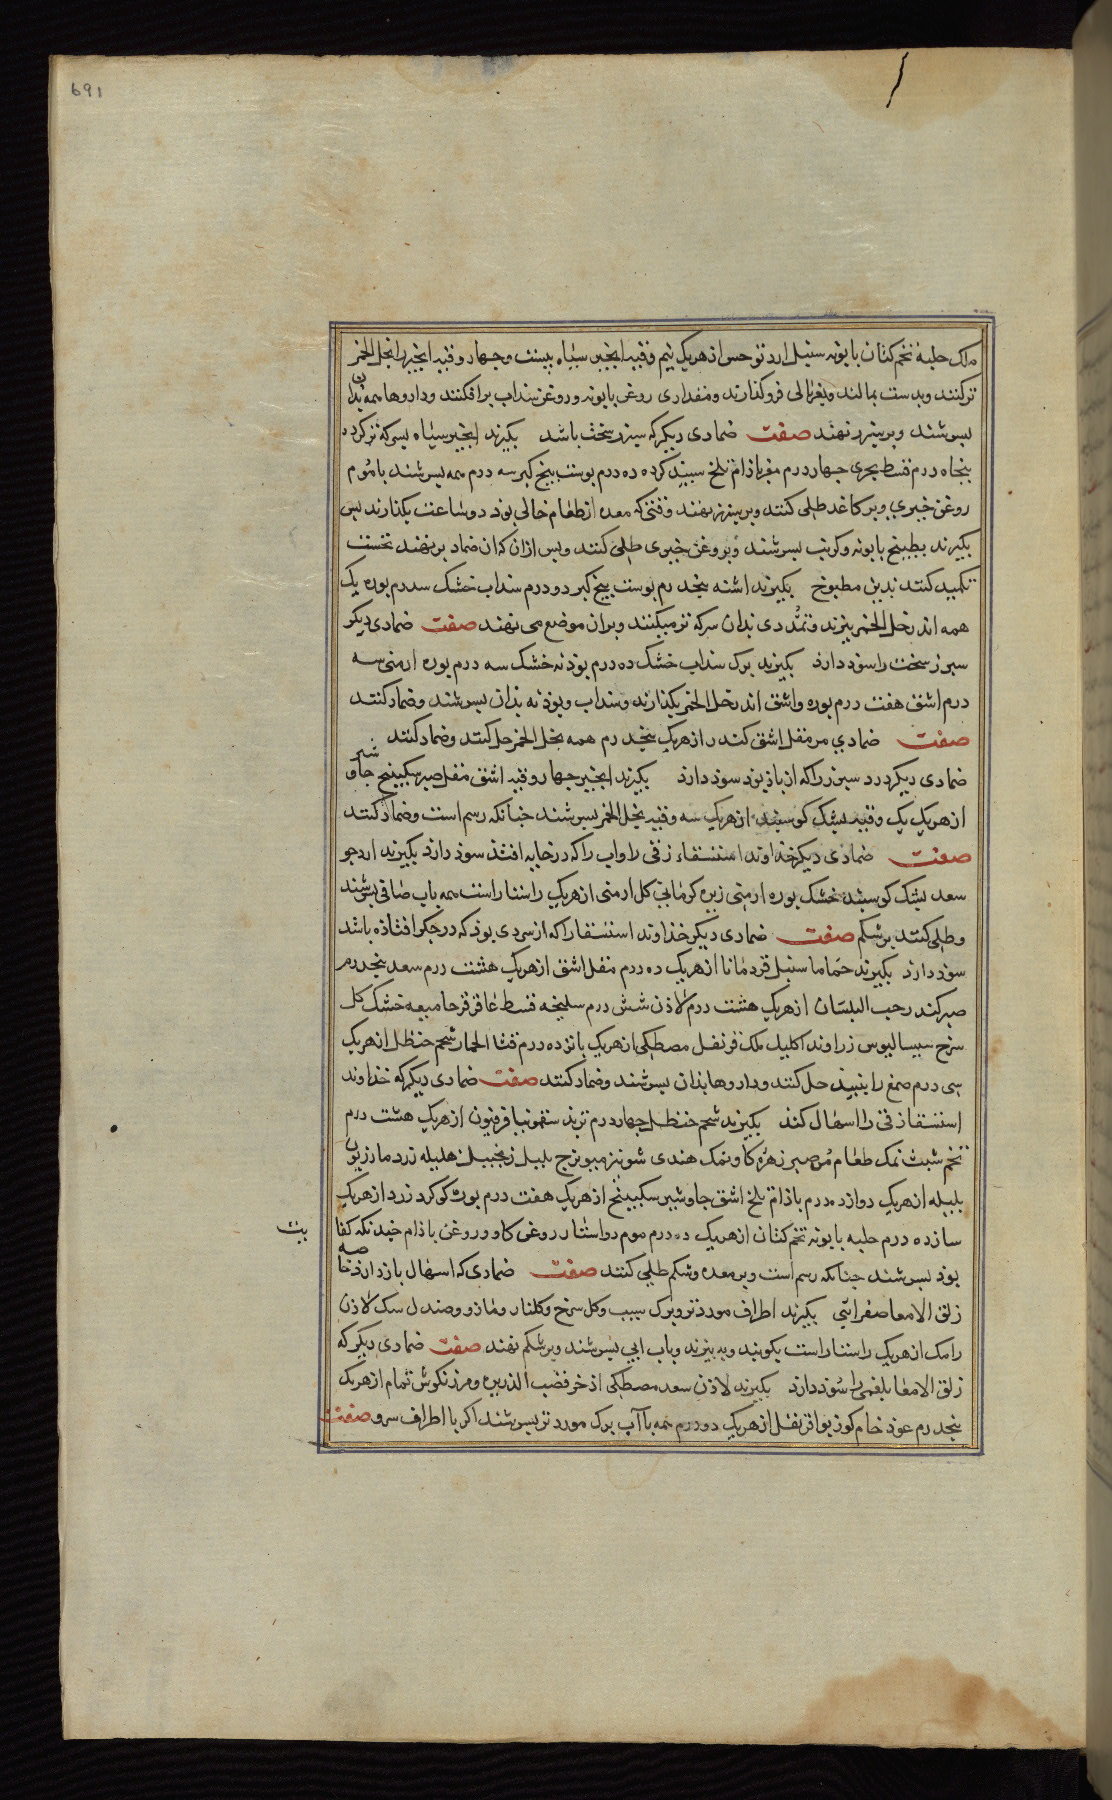 691
ملک حلبه تخم کتان بابونه سنبل ارد ترمس از هریک نیم وقیه انجیر سیاه بیست وچهار وقیه انجیر را بخل الخمر
ترکنند وبدست بمالند وبغربالی فروکذارند ومقداری روغن بابونه وروغن سداب برافکنند وداروها همه بذان
بسرشند وبر سپرز نهند صفت ضمادی دیکر که سپرز سخت باشد بکیرند انجیر سیاه بسرکه ترکرده
پنجاه درم قسط بحری چهار درم مغز باذام تلخ سپید کرده ده درم پوست بیخ کبر سه درم همه بسرشند با موم
روغن خیری وبر کاغد طلی کنند وبر سپرز نهند وقتی که معده از طعام خالی بوذ دو ساعت بکذارند پس
بکیرند بطبیخ بابونه وکرنب بسرشند وبروغن خیری طلی کنند وپس ازان که ان ضماد برنهند نخست
تکمید کنند بدین مطبوخ بکیرند اشنه پنجدرم پوست بیخ کبر دو درم سداب خشک سدرم بوره یک
همه اندر خل الخمر بپزند ونمدی بذان سرکه تر میکنند وبران موضع می نهند صفت ضمادی دیکر
سپرز سخت را سوذ دارذ بکیرند برک سداب خشک ده درم پوذنه خشک سه درم بوره ارمنی سه
درم اشق هفت درم بوره واشق اندر خل الخمر بکذارند وسداب وپوذنه بذان بسرشند وضماد کنند
صفت ضمادی مر مقل اشق کندر از هریک پنجدرم همه بخل الخمر حل کنند وضماد کنند
ضمادی دیکر درد سپرز را که از باذ بوذ سوذ دارذ بکیرند انجیر چهار وقیه اشق مقل صبر سکبینج جاوشیر
از هریک یک وقیه پشک کوسپند از هریک سه وقیه بخل الخمر بسرشند چنانکه رسم است وضماد کنند
صفت ضمادی دیکر خذاوند استسقاء زقی را واب را که در خایه افتذ سوذ دارذ بکیرند ارد جو
سعد پشک کوسپند خشک بوره ارمنی زیره کرمانی کل ارمنی از هریک راستا راست همه باب صافی بسرشند
وطلی کنند بر شکم صفت ضمادی دیکر خذاوند استسقا را که از سردی بوذ که در جکر افتاذه باشد
سوذ دارذ بکیرند حماما سنبل قردمانا از هریک ده درم مقل اشق از هریک هشت درم سعد پنجدرم
صبر کندر حب البلسان از هریک هشت درم لاذن شش درم سلیخه قسط عاقرقرحا میعه خشک کل
سرخ سیسالیوس زراوند اکلیل ملک قرنفل مصطکی از هریک پانزده درم قثا الحمار شحم حنظل از هریک
سی درم صمغ را بنبیذ حل کنند وداروها بذان بسرشند وضماد کنند صفت ضمادی دیکر که خذاوند
استسقا زقی را اسهال کند بکیرند شحم حنظل چهار درم تربذ سقمونیا فرفیون از هریک هشت درم
تخم شبث نمک طعام مر صبر زهره کاو نمک هندی شونیز میویزج پلپل زنجبیل هلیله زرد مازریون
بلیله از هریک دوازده درم باذام تلخ اشق جاوشیر سکبینج از هریک هفت درم بورق کوکرد زرد از هریک
سازده درم حلبه بابونه تخم کتان از هریک ده درم موم دو استار روغن کاو وروغن باذام چندنکه کفا
یت
بوذ بسرشند چنانکه رسم است وبر معده وشکم طلی کنند صفت ضمادی که اسهال بازدارذ خاصه
زلق الامعا صفرائی بکیرند اطراف مورد تر وبرک سیب وکل سرخ وکلنار ومازو وصندل سک لاذن
رامک از هریک راستا راست بکوبند وببیزند وباب ابی بسرشند وبر شکم نهند صفت ضمادی دیکر که
زلق الامعا بلغمی را سوذ دارذ بکیرند لاذن سعد مصطکی اذخر قصب الذریره ومرزنکوش نمام از هریک
پنجدرم عوذ خام کوز بوا قرنفل از هریک دو درم همه با آب برک مورد تر بسرشند اکر با اطراف سرو صفت